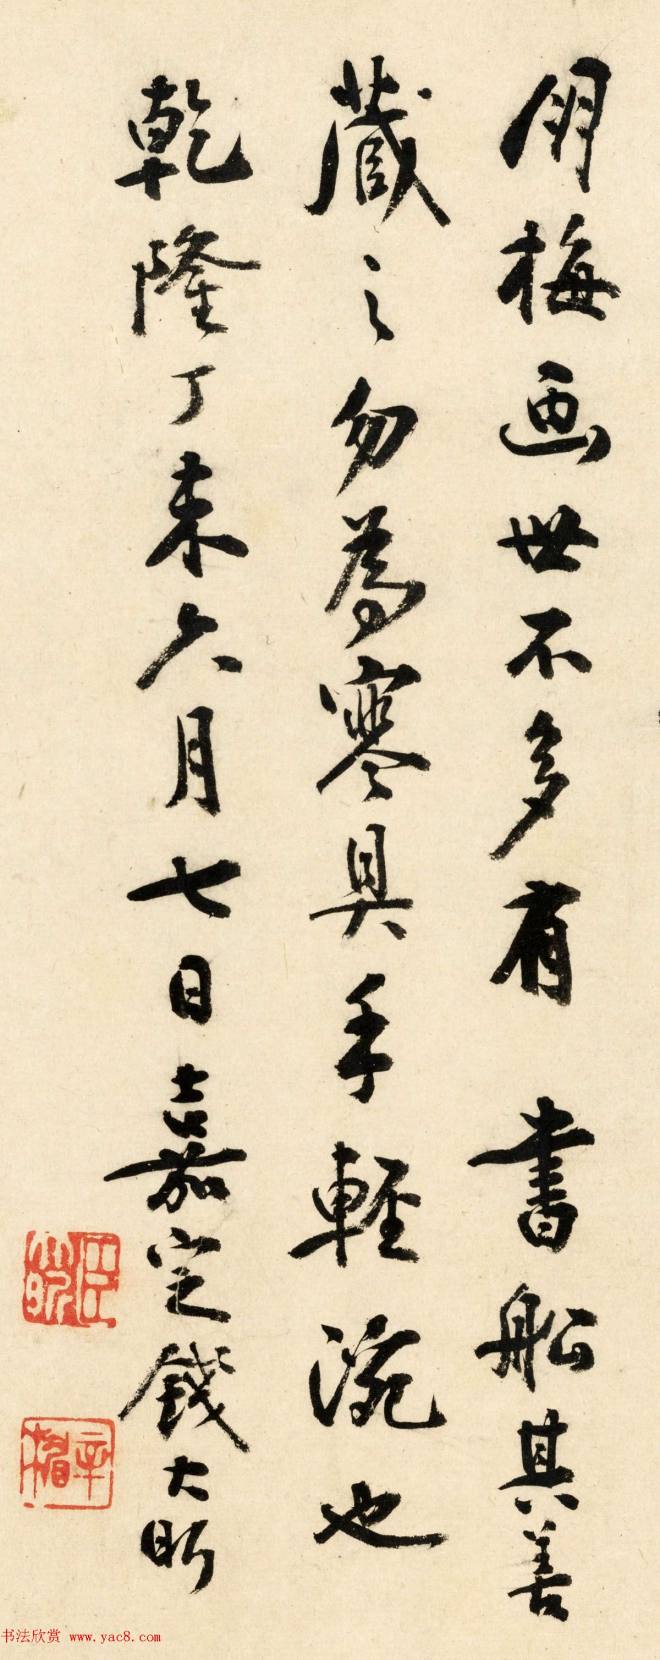 朋梅画世不多有 書船其善
藏之勿為寒具手輕涴也
乾隆丁未六月七日嘉定錢大昕
臣大昕
辛楣
书法欣赏 www.yac8.com